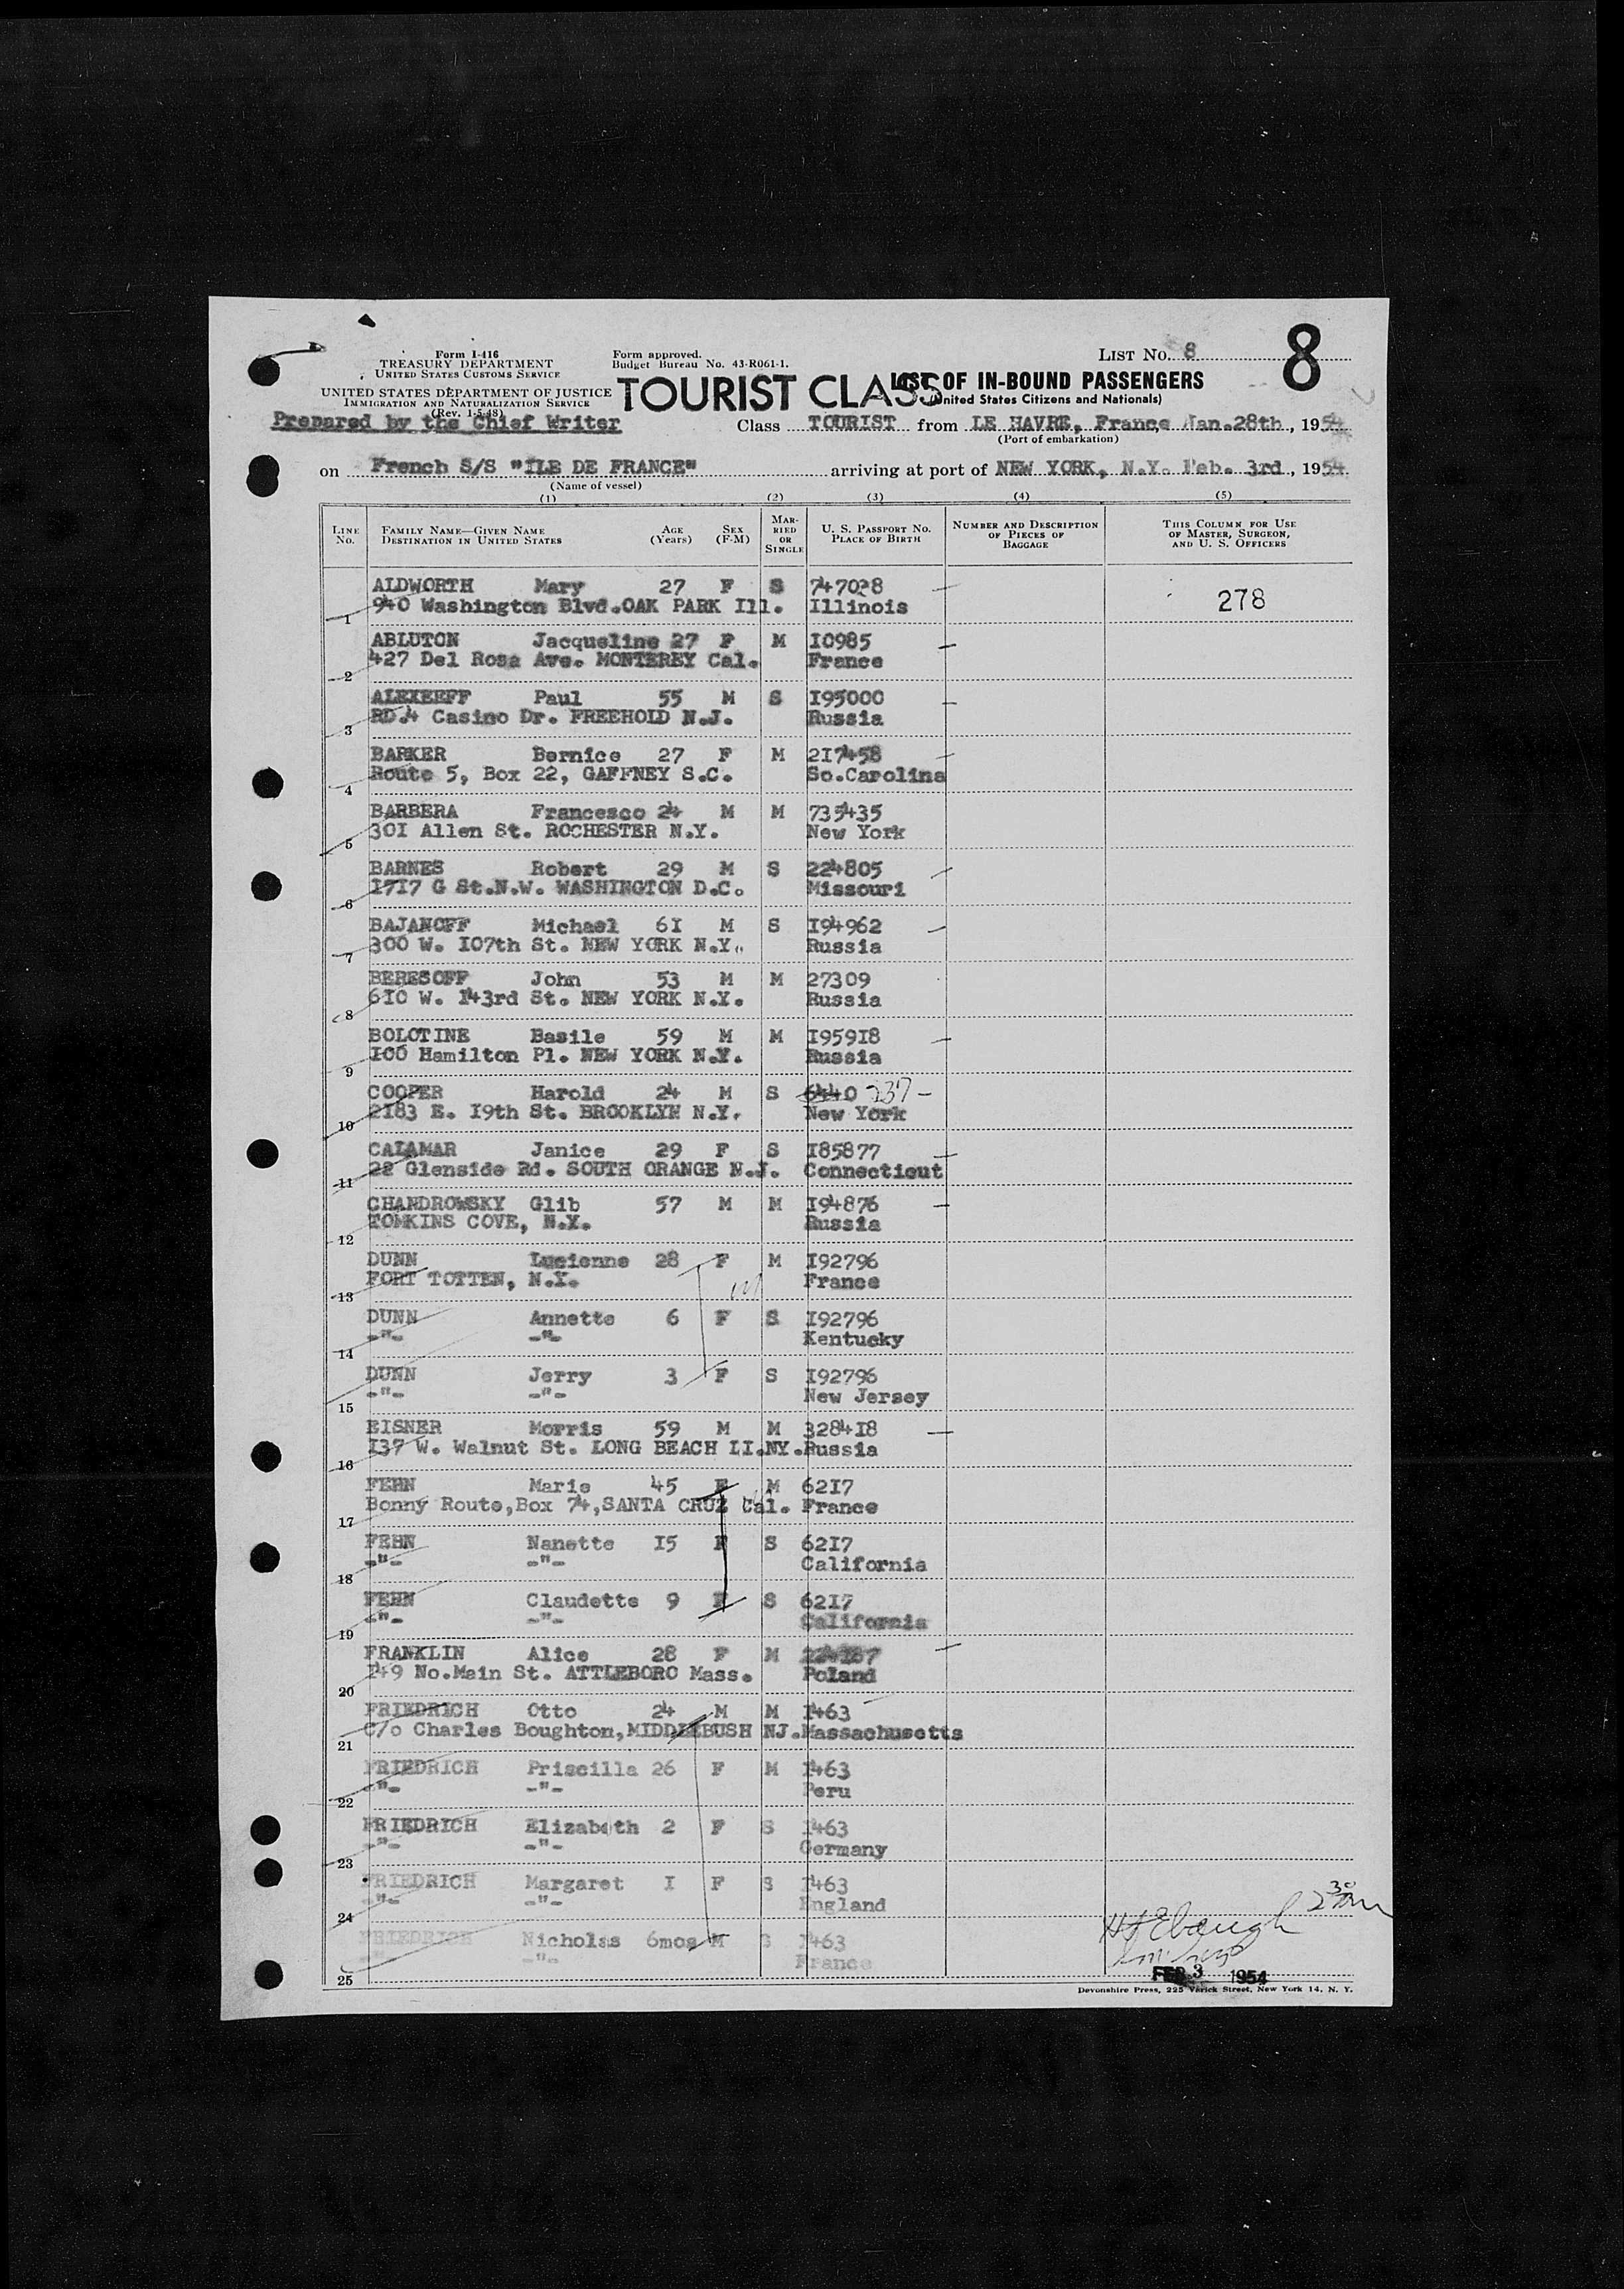 Form I-416
TREASURY DEPARTMENT
UNITED STATES CUSTOMS SERVICE
UNITED STATES DEPARTMENT OF JUSTICE
IMMIGRATION AND NATURALIZATION SERVICE
(Rev. 1-5-48)
Prepared by the Chief Writer
Form approved.
Budget Bureau No. 43-R061-1.
LIST No. 8
8
TOURIST CLASS
LIST OF IN-BOUND PASSENGERS
(United States Citizens and Nationals)
Class TOURIST from LE HAVRE, France, Jan. 28th, 1954
(Port of embarkation)
on French S/S "ILE DE FRANCE" arriving at port of NEW YORK, N.Y. Feb. 3rd, 1954
(Name of vessel)
(1) (2) (3) (4) (5)
LINE No. FAMILY NAME—GIVEN NAME DESTINATION IN UNITED STATES AGE (Years) SEX (F-M) MARRIED OR SINGLE U. S. PASSPORT No. PLACE OF BIRTH NUMBER AND DESCRIPTION OF PIECES OF BAGGAGE THIS COLUMN FOR USE OF MASTER, SURGEON, AND U. S. OFFICERS
ALDWORTH Mary 27 F S 747028
1 940 Washington Blvd.OAK PARK Ill. Illinois 278
ABLUTON Jacqueline 27 F M I0985
2 427 Del Rosa Ave. MONTEREY Cal. France
ALEXEEFF Paul 55 M S I95000
3 RD.4 Casino Dr. FREEHOLD N.J. Russia
BARKER Bernice 27 F M 2I7458
4 Route 5, Box 22, GAFFNEY S.C. So.Carolina
BARBERA Francesco 24 M M 735435
5 30I Allen St. ROCHESTER N.Y. New York
BARNES Robert 29 M S 224805
6 I7I7 G St.N.W. WASHINGTON D.C. Missouri
BAJANOFF Michael 6I M S I94962
7 300 W. I07th St. NEW YORK N.Y. Russia
BERESOFF John 53 M M 27309
8 6I0 W. I43rd St. NEW YORK N.Y. Russia
BOLOTINE Basile 59 M M I959I8
9 I00 Hamilton Pl. NEW YORK N.Y. Russia
COOPER Harold 24 M S 6440 237-
10 2I83 E. I9th St. BROOKLYN N.Y. New York
CALAMAR Janice 29 F S I85877
11 22 Glenside Rd. SOUTH ORANGE N.J. Connecticut
CHANDROWSKY Glib 57 M M I94876
12 TOMKINS COVE, N.Y. Russia
DUNN Lucienne 28 F M I92796
13 FORT TOTTEN, N.Y. France
DUNN Annette 6 F S I92796
14 -"- -"- Kentucky
DUNN Jerry 3 F S I92796
15 -"- -"- New Jersey
EISNER Morris 59 M M 3284I8
16 I37 W. Walnut St. LONG BEACH LI.NY. Russia
FEHN Marie 45 F M 62I7
17 Bonny Route,Box 74,SANTA CRUZ Cal. France
FEHN Nanette I5 F S 62I7
18 -"- -"- California
FEHN Claudette 9 F S 62I7
19 -"- -"- California
FRANKLIN Alice 28 F M
20 249 No.Main St. ATTLEBORO Mass. Poland
FRIEDRICH Otto 24 M M I463
21 C/o Charles Boughton,MIDDLEBUSH NJ. Massachusetts
FRIEDRICH Priscilla 26 F M I463
22 -"- -"- Peru
FRIEDRICH Elizabeth 2 F S I463
23 -"- -"- Germany
FRIEDRICH Margaret I F S I463
24 -"- -"- England
FRIEDRICH Nicholas 6mos M S I463
25 -"- France
FEB 3 1954
Devonshire Press, 225 Varick Street, New York 14, N. Y.